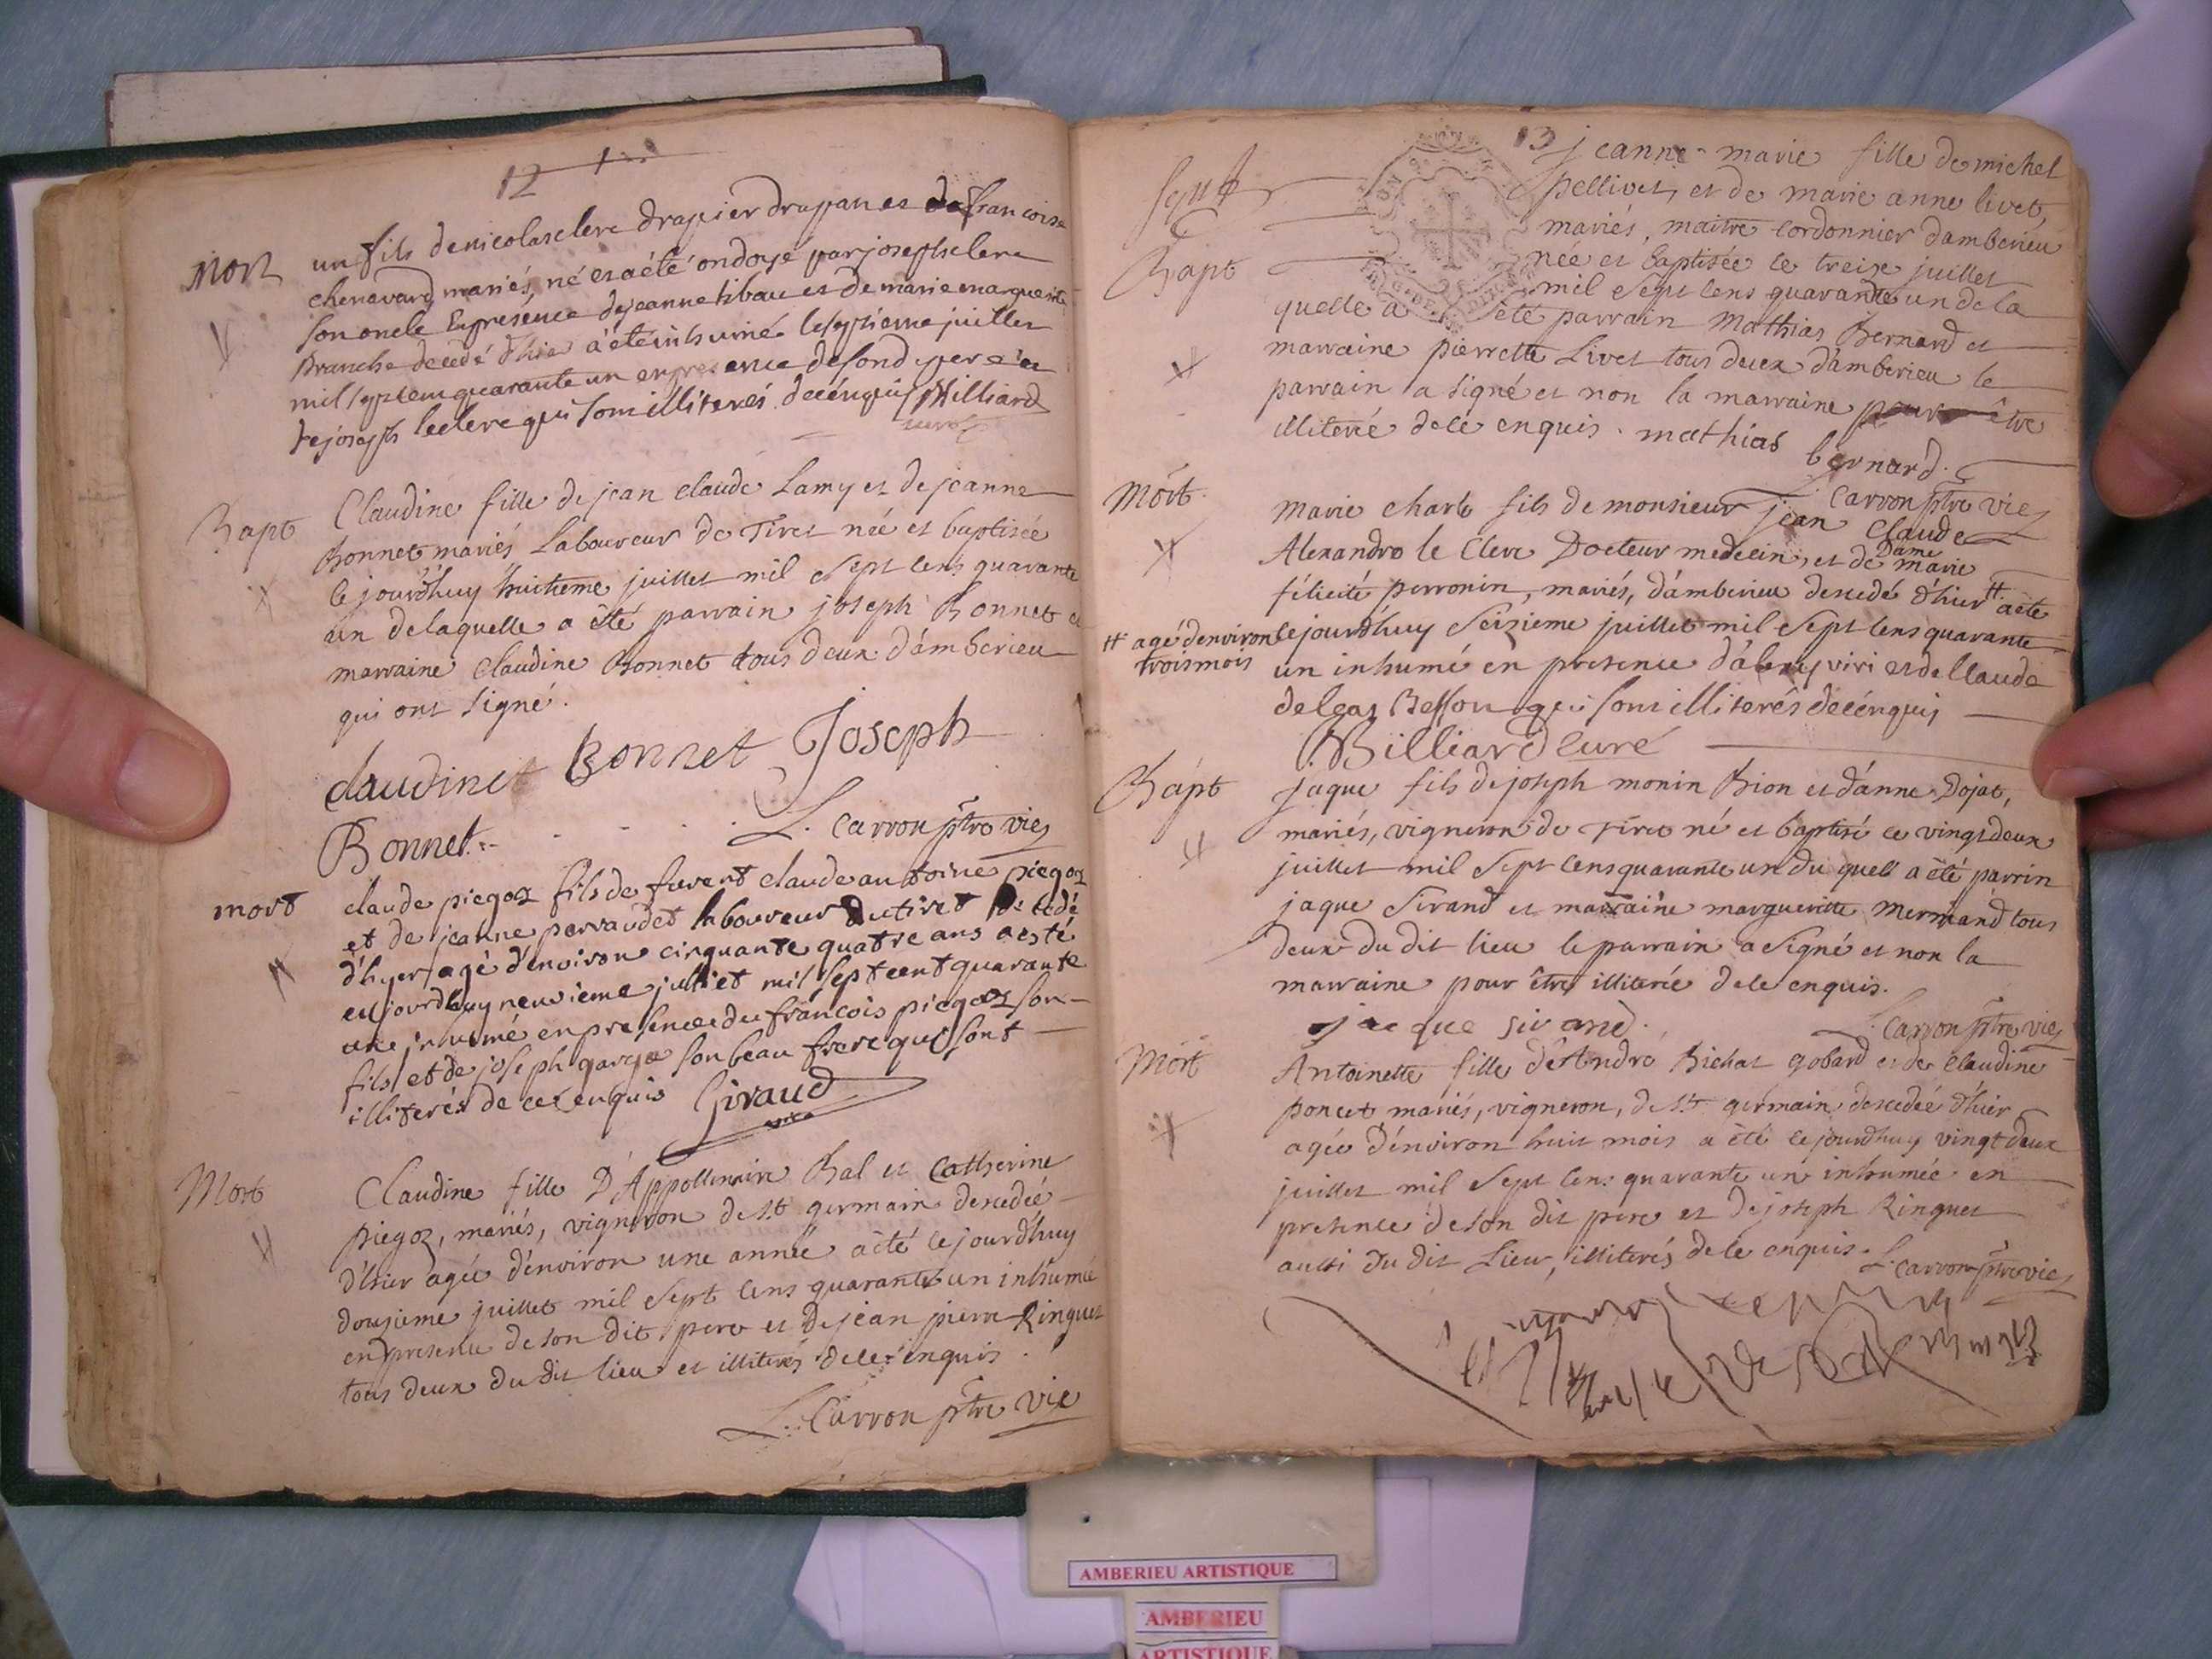 12
Mort
un fils de nicolas clerc drapier drapan et de francoise
chenavard mariés, né et a été ondoyé par joseph clerc
son oncle En presence de jeanne tibau et de marie marguerite
branche decedé d'hier a été inhumé le septieme juillet
mil sept cent quarante un en presence de son d. pere et
de joseph leclerc qui sont illiterés de ce enquis Billiard
curé
Bapt
Claudine fille de jean claude Lamy et de jeanne
Bonnet mariés Laboureur de Tiret née et baptisée
le jourd'huy huitieme juillet mil sept cens quarante
un de laquelle a été parrain joseph Bonnet et
marraine claudine Bonnet tous deux d'amberieu
qui ont signé.
claudine Bonnet Joseph
Bonnet.
L. Carron ptre vic
mort
claude piegoz fils de fuvent claude antoine piegoz
et de jeanne perraudet laboureur du tiret decedé
d'hyer agé d'environ cinquante quatre ans a esté
aujourdhuy neuvieme julliet mil sept cent quarante
une inhumé en presence du françois piegoz son
fils et de joseph garça son beau frere qui sont
illiterés de ce enquis Giraud
vica
Mort
Claudine fille D'Appollinaire Bal et Catherine
piegoz, mariés, vigneron de st germain decedée
d'hier agée d'environ une année a été ce jourd'huy
douzieme juillet mil sept cens quarante un inhumée
en presence de son dit pere et de jean pierre Ringuet
tous deux du dit lieu et illiterés de ce enquis.
L. Carron ptre vic
13
Bapt
jeanne-marie fille de michel
pellivet, et de marie anne livet,
mariés, maitre cordonnier d'amberieu
née et baptisée le treize juillet
mil sept cens quarante un de la
quelle a été parrain Mathias Bernard et
marraine pierrette Livet tous deux d'amberieu le
parrain a signé et non la marraine pour être
illiterée de ce enquis. mathias
bernard.
Carron ptre vic
Mort.
marie charle fils de monsieur jean Claude
Alexandre le Clerc Docteur medecin, et de Dame marie
félicité perronin, mariés, d'amberieu decedé d'hier # a été
# agé d'environ
trois mois
le jourd'huy seizieme juillet mil sept cens quarante
un inhumé en presence d'alexy viri et de Claude
delgas Besson qui sont illiterés de ce enquis
Billiard curé
Bapt
jaque fils de joseph monin Bion et d'anne Dojat,
mariés, vigneron de Tiret né et baptisé le vingt deux
juillet mil sept cens quarante un du quell a été parrin
jaque Sirand et marraine margueritte mermand tous
deux du dit lieu le parrain a signé et non la
marraine pour être illiterée de ce enquis.
jacque sirand.
L. Carron ptre vic
Mort
Antoinette fille d'André Bichat gobard et de Claudine
poncet mariés, vigneron, de st germain decedée d'hier
agée d'environ huit mois a été ce jourdhuy vingt deux
juillet mil sept cens quarante un inhumée en
presence de son dit pere et de joseph Ringuet
aussi du dit Lieu, illiterés de ce enquis. L. Carron ptre vic
AMBERIEU ARTISTIQUE
AMBERIEU
ARTISTIQUE